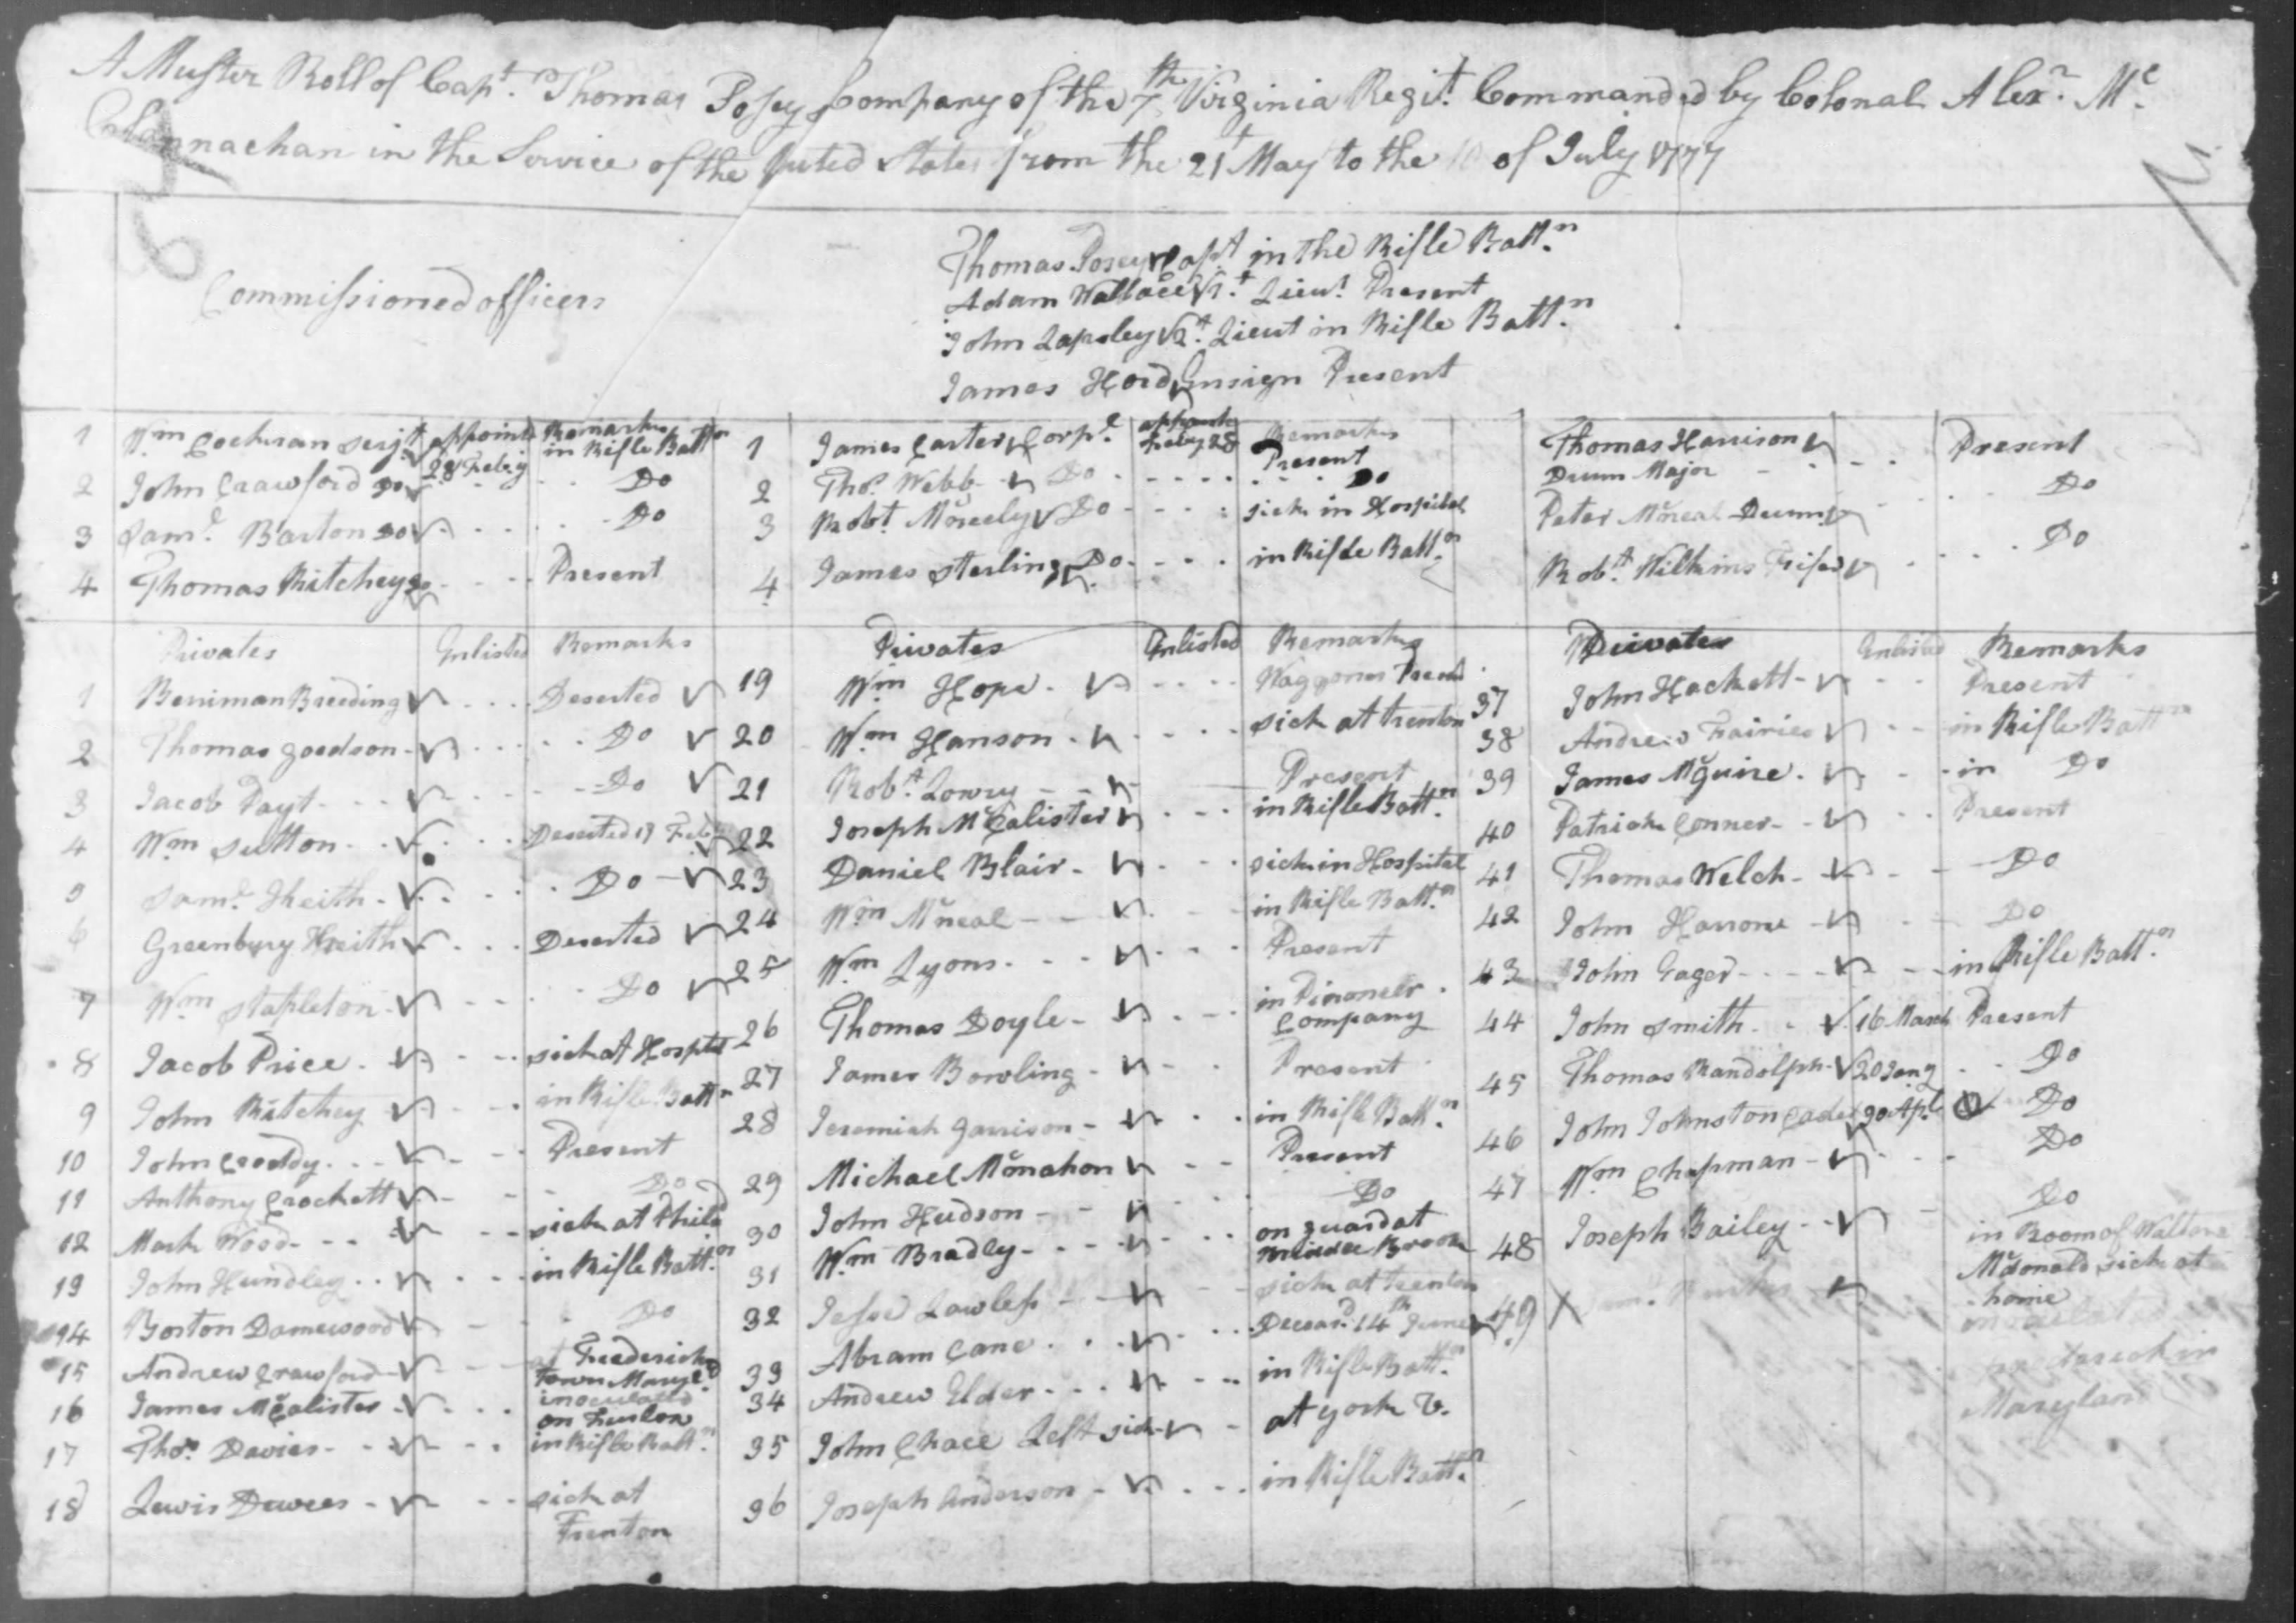 A Muster Roll of Capt. Thomas Posey Company of the 7th Virginia Regit. Commanded by Colonal Alexr. Mc
Clannachan in the Service of the Uuted States from the 21t May to the 10 of July 1777
Commissioned officers
Thomas Posey Capt in the Rifle Battn.
Adam Wallace 1t. Lieut. Present
John Lapsley 2t. Lieut in Rifle Battn.
James Hord Ensign Present
1 Wm Cochran Serjt. appointd 28 Feby Remarks in Rifle Battn
2 John Crawford Do Do
3 Saml. Barton Do Do
4 Thomas Ritchey Do Present
1 James Carter Corpl. appointd Feby 28 Remarks Present
2 Thos. Webb Do Do
3 Robt Mcneely Do sick in Hospital
4 James Sterling Do in Rifle Battn.
Thomas Harrison Present
Drum Major
Peter Mcneal Drumr Do
Robt. Wilkins Fifer Do
Privates Enlisted Remarks
1 Berriman Breeding Deserted
2 Thomas goodson Do
3 Jacob Payt Do
4 Wm Sutton Deserted 17 Feby
5 Saml. Kheith Do
6 Greenbury Kheith Deserted
7 Wm Stapleton Do
8 Jacob Price sick at Hosptal
9 John Ritchey in Rifle Battn
10 John Croddy Present
11 Anthony Crockett Do
12 Mark Wood sick at Phila
13 John Hundley in Rifle Battn.
14 Boston Damewood Do
15 Andrew Crawford at Frederick
town Maryld
inoculated
16 James McCalister on Furlow
17 Thos. Davies in Rifle Battn.
18 Lewis Dewees sick at
Trenton
Privates Enlisted Remarks
19 Wm Hope Waggoner Present
20 Wm Hanson sick at trenton
21 Robt. Lowry Present
22 Joseph McCalister in Rifle Battn.
23 Daniel Blair sick in Hospital
24 Wm Mcneal in Rifle Battn.
25 Wm Lyons Present
26 Thomas Doyle in Pironeler
Company
27 James Bowling Present
28 Jeremiah garrison in Rifle Battn.
29 Michael Mcmahon Present
30 John Hudson Do
31 Wm Bradley on guard at
Middle Brook
32 Jesse Lawless sick at trenton
33 Abram Cane Decesd. 14th June
34 Andrew Elder in Rifle Battn.
35 John Chace Left sick at york V.
36 Joseph Anderson in Rifle Battn.
Privates Enlisted Remarks
37 John Hackett Present
38 Andrew Fairies in Rifle Battn
39 James Mcguire in Do
40 Patrick Conner Present
41 Thomas Welch Do
42 John Harrone Do
43 John Gager in Rifle Battn.
44 John Smith 16 March Present
45 Thomas Randolph 20 Jany Do
46 John Johnston Cadet 30 Apl. Do
47 Wm Chapman Do
48 Joseph Bailey Do
in Room of
Mcdonald sick at
home
49
Marylan